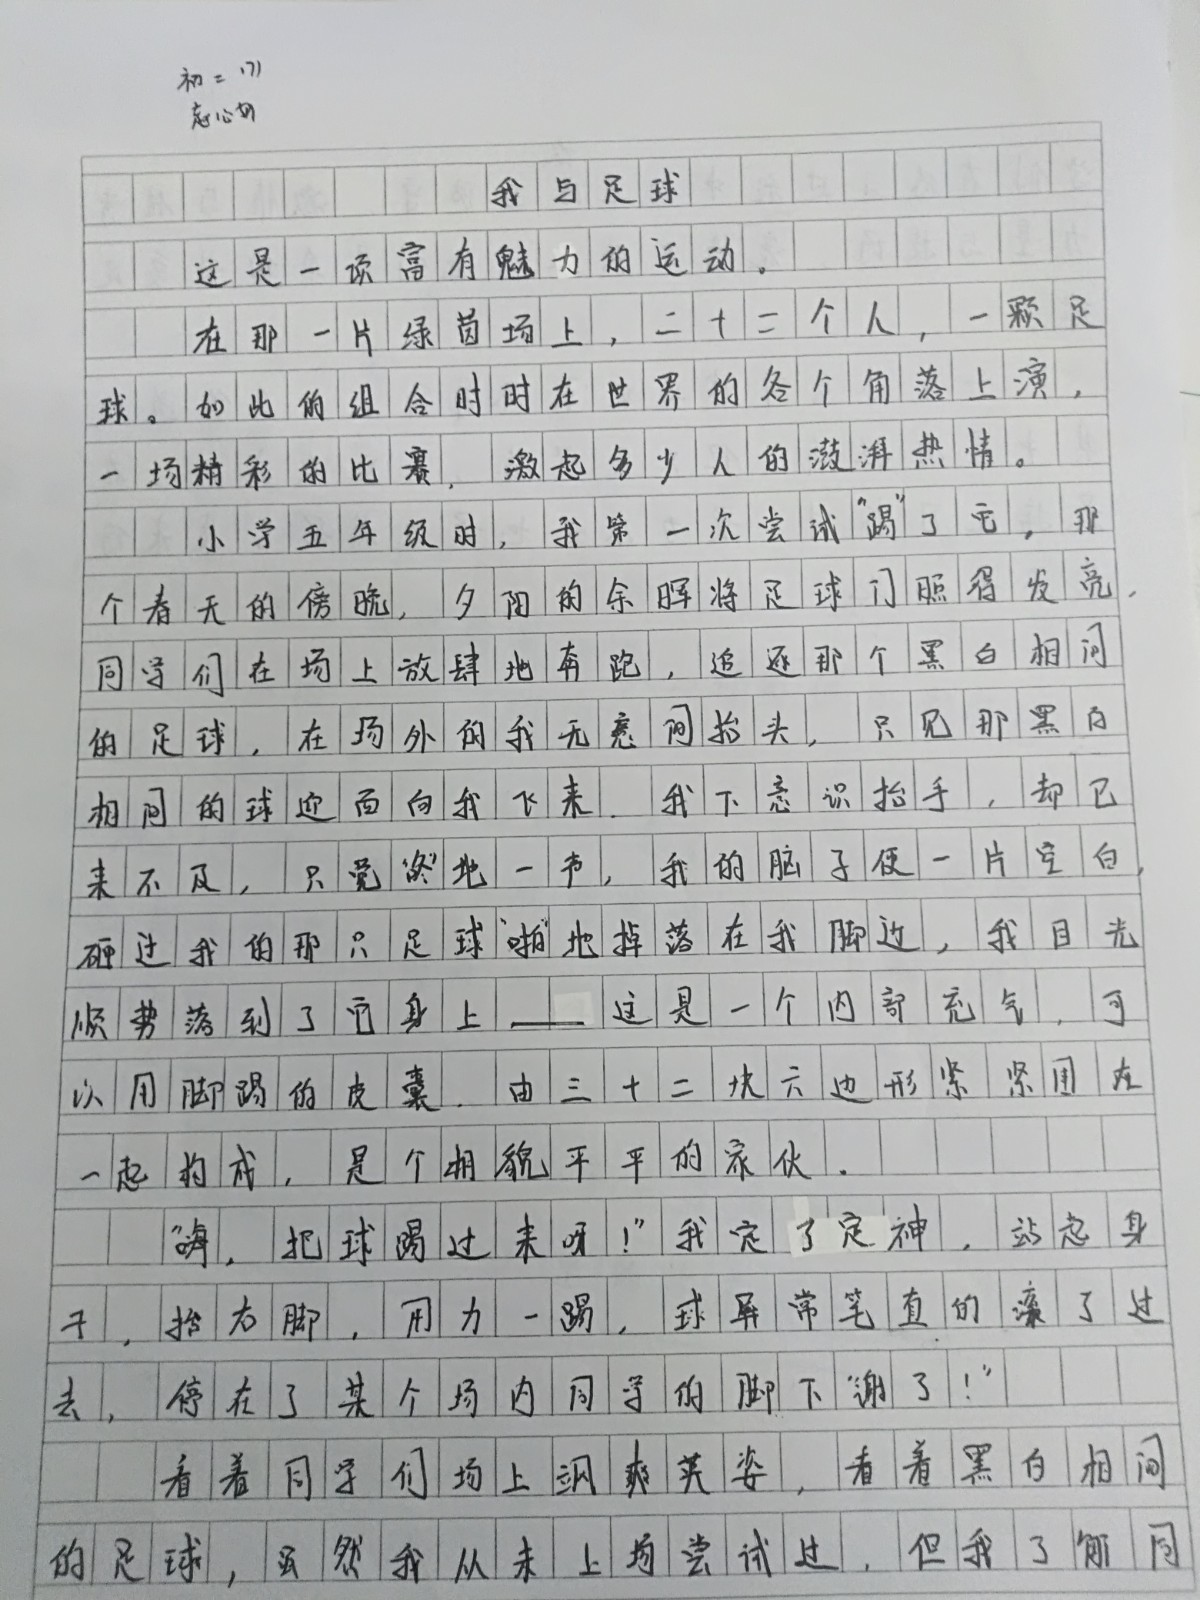 初二(7)
我与足球
这是一项富有魅力的运动。
在那一片绿茵场上，二十二个人，一颗足
球。如此的组合时时在世界的各个角落上演，
一场精彩的比赛，激起多少人的澎湃热情。
小学五年级时，我第一次尝试“踢”了它。那
个春天的傍晚，夕阳的余晖将足球门照得发亮，
同学们在场上放肆地奔跑，追逐那个黑白相间
的足球，在场外的我无意间抬头，只见那黑白
相间的球迎面向我飞来。我下意识抬手，却已
来不及，只觉“咚”地一声，我的脑子便一片空白，
砸过我的那只足球“啪”地掉落在我脚边，我目光
顺势落到了它身上——这是一个内部充气，可
以用脚踢的皮囊，由三十二块六边形紧紧围在
一起构成，是个相貌平平的家伙。
“嗨，把球踢过来呀！”我定了定神，站起身
子，抬右脚，用力一踢，球异常笔直的滚了过
去，停在了某个场内同学的脚下“谢了！”
看着同学们场上飒爽英姿，看着黑白相间
的足球，虽然我从未上场尝试过，但我了解同